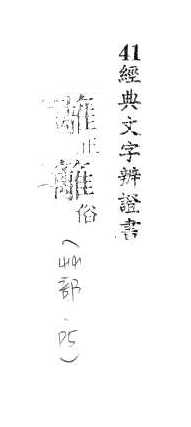 41經典文字辨證書
正
俗
(艸部.P5)